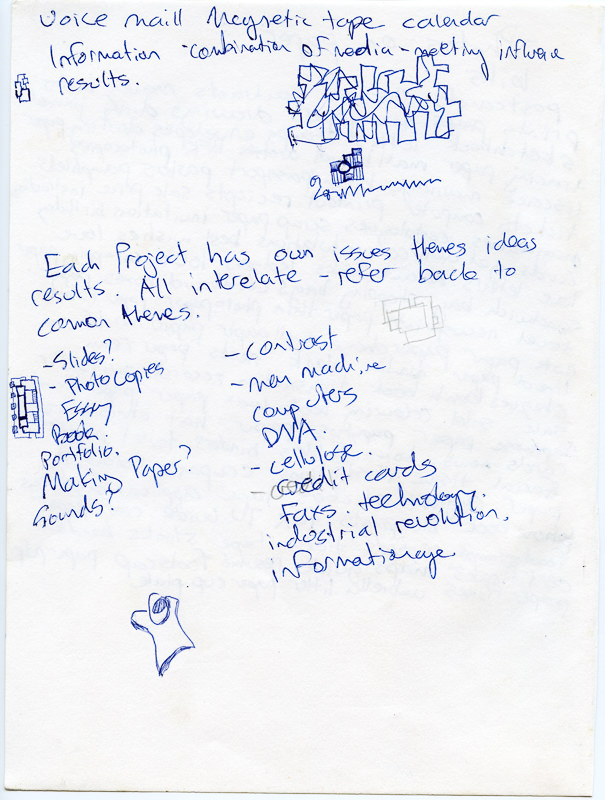 voice maill Magnetic tape calendar
Information - combination of media - meeting influence
results.
Each Project has own issues themes ideas
results. All interelate - refer back to
common themes.
- Slides?
- Photocopies
Essay
Book.
Portfolio.
Making Paper?
Sounds?
- contrast
- man machine
computers
DNA.
- cellulose.
- credit cards
Faxs. technology.
industrial revolution.
information age